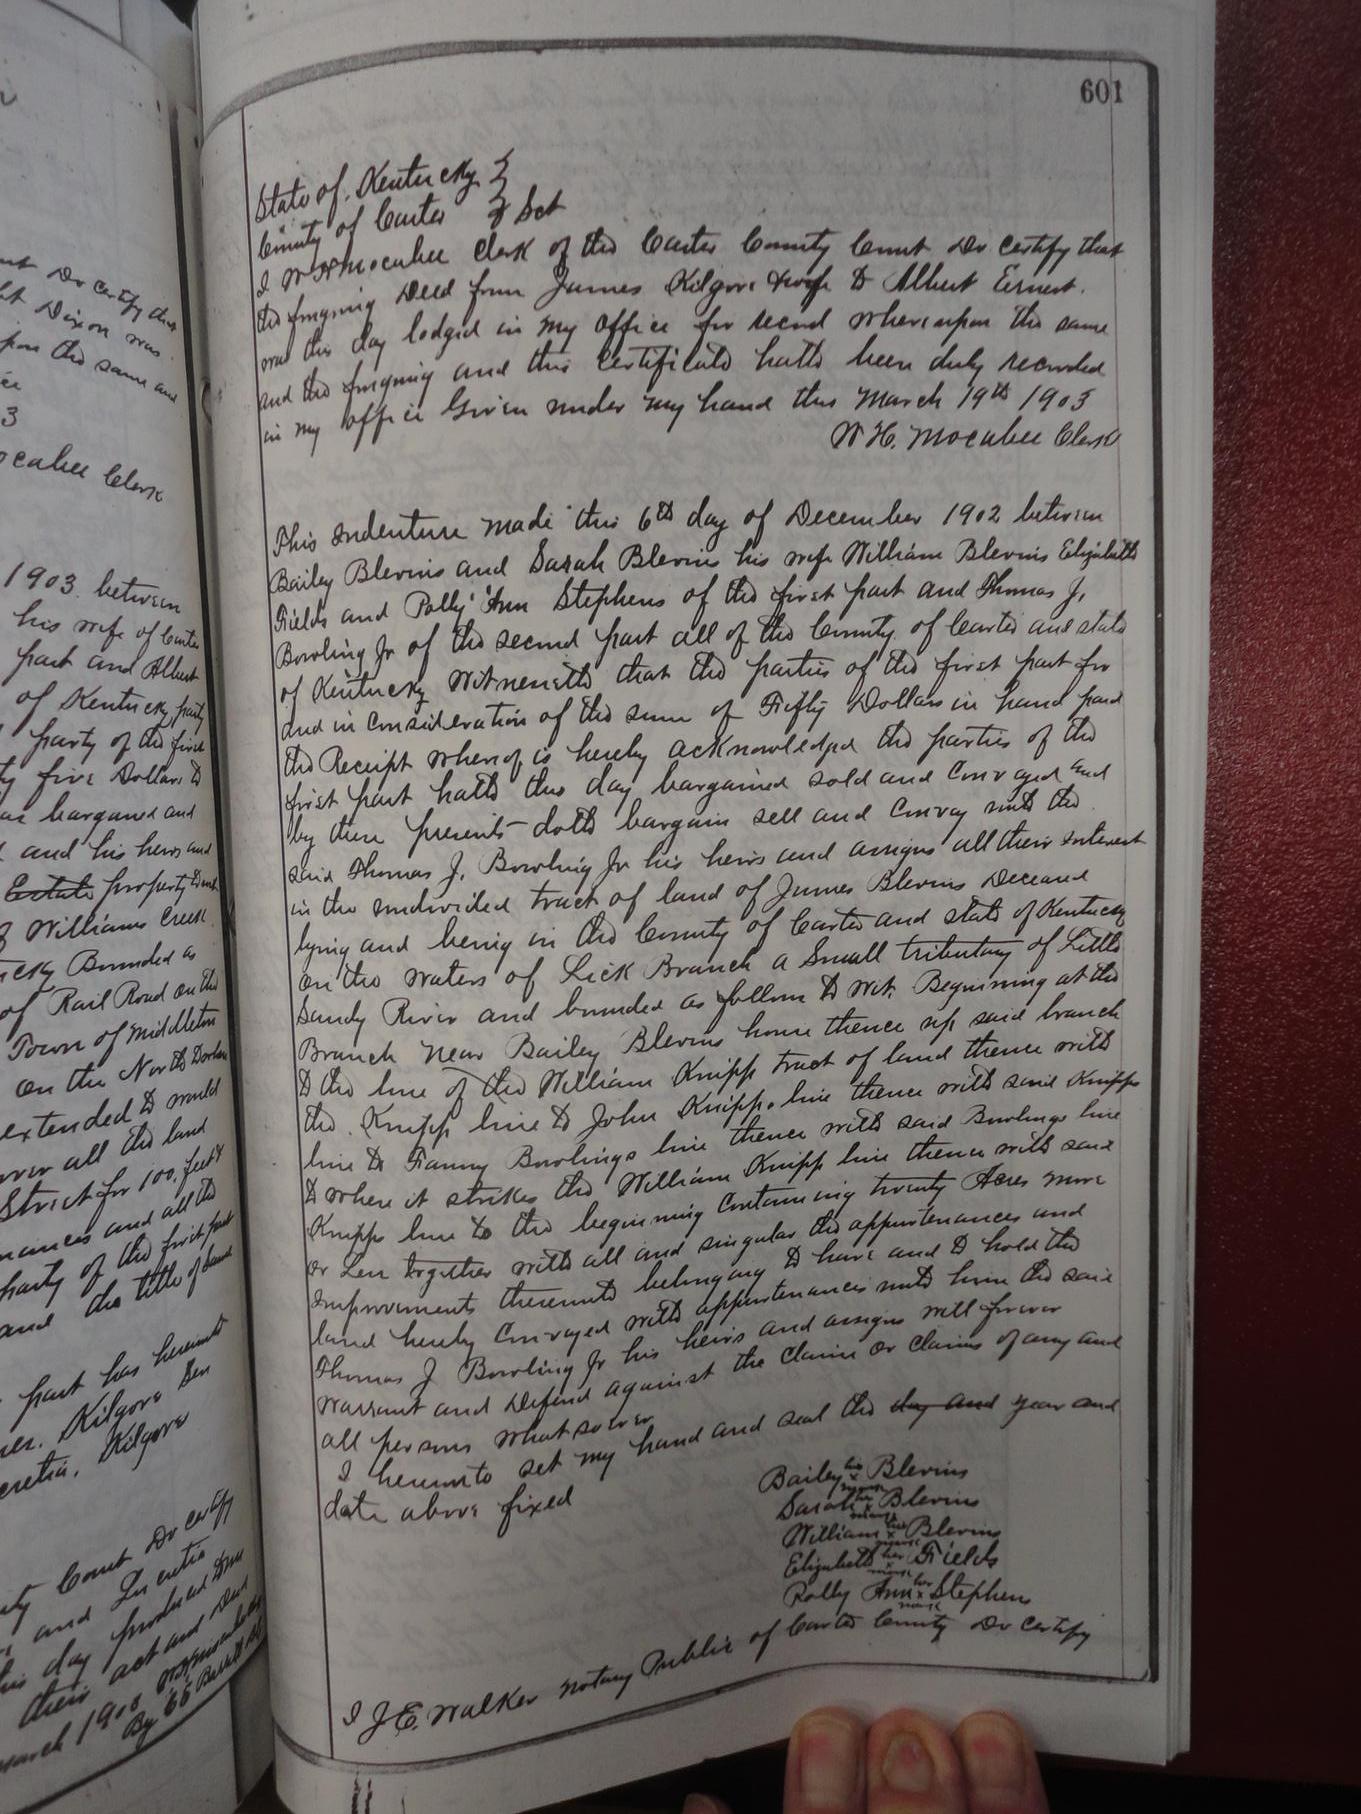 nt Do certify that
t Dixon was
pon the same and
ice
3
ocabee Clerk
1903. between
his wife of Carter
part and Albert
of Kentucky party
party of the first
ty five Dollars to
as bargained and
and his heirs and
Estate property
f Williams Creek
cky Bounded as
of Rail Road on the
Town of Middleton
on the North
extended to would
over all the land
Street for 100. feet
nances and all the
party of the first part
and the title of
part has hereunto
Kilgore
cretia, Kilgore
ty Court Do certify
and Lucretia
his day produced
their act and deed
march 1903
By
601
State of Kentucky }
County of Carter } Sct
I W H Mocabee Clerk of the Carter County Court Do certify that
the forgoing Deed from James Kilgore & wife to Albert Ernest.
was this day lodged in my office for record whereupon the same
and the forgoing and this certificate hath been duly recorded
in my office Given under my hand this March 19th 1903
W H. Mocabee Clerk
This indenture made this 6th day of December 1902 between
Bailey Blevins and Sarah Blevins his wife William Blevins Elizabeth
Fields and Polly Ann Stephens of the first part and Thomas J.
Bowling Jr of the second part all of the County of Carter and state
of Kentucky Witnesseth that the parties of the first part for
and in consideration of the sum of Fifty Dollars in hand paid
the Receipt whereof is hereby acknowledged the parties of the
first part hath this day bargained sold and Conveyed and
by these presents doth bargain sell and Convey unto the
said Thomas J. Bowling Jr his heirs and assigns all their interest
in the undivided tract of land of James Blevins Deceased
lying and being in the County of Carter and state of Kentucky
on the waters of Lick Branch a Small tributary of Little
Sandy River and bounded as follow to wit. Beginning at the
Branch near Bailey Blevins house thence up said branch
to the line of the William Knipp tract of land thence with
the Knipp line to John Knipps line thence with said Knipps
line to Fanny Bowlings line thence with said Bowlings line
to where it strikes the William Knipp line thence with said
Knipps line to the beginning Containing twenty Acres more
or Less together with all and singular the appurtenances and
improvements thereunto belonging to have and to hold the
land hereby Conveyed with appurtenances unto him the said
Thomas J Bowling Jr his heirs and assigns will forever
warrant and Defend against the claim or claims of any and
all persons whatsoever
I hereunto set my hand and seal the day and year and
date above fixed
Bailey his x mark Blevins
Sarah her x mark Blevins
William his x mark Blevins
Elizabeth her x mark Fields
Polly Ann her x mark Stephens
I J E. Walker notary Public of Carter County Do certify